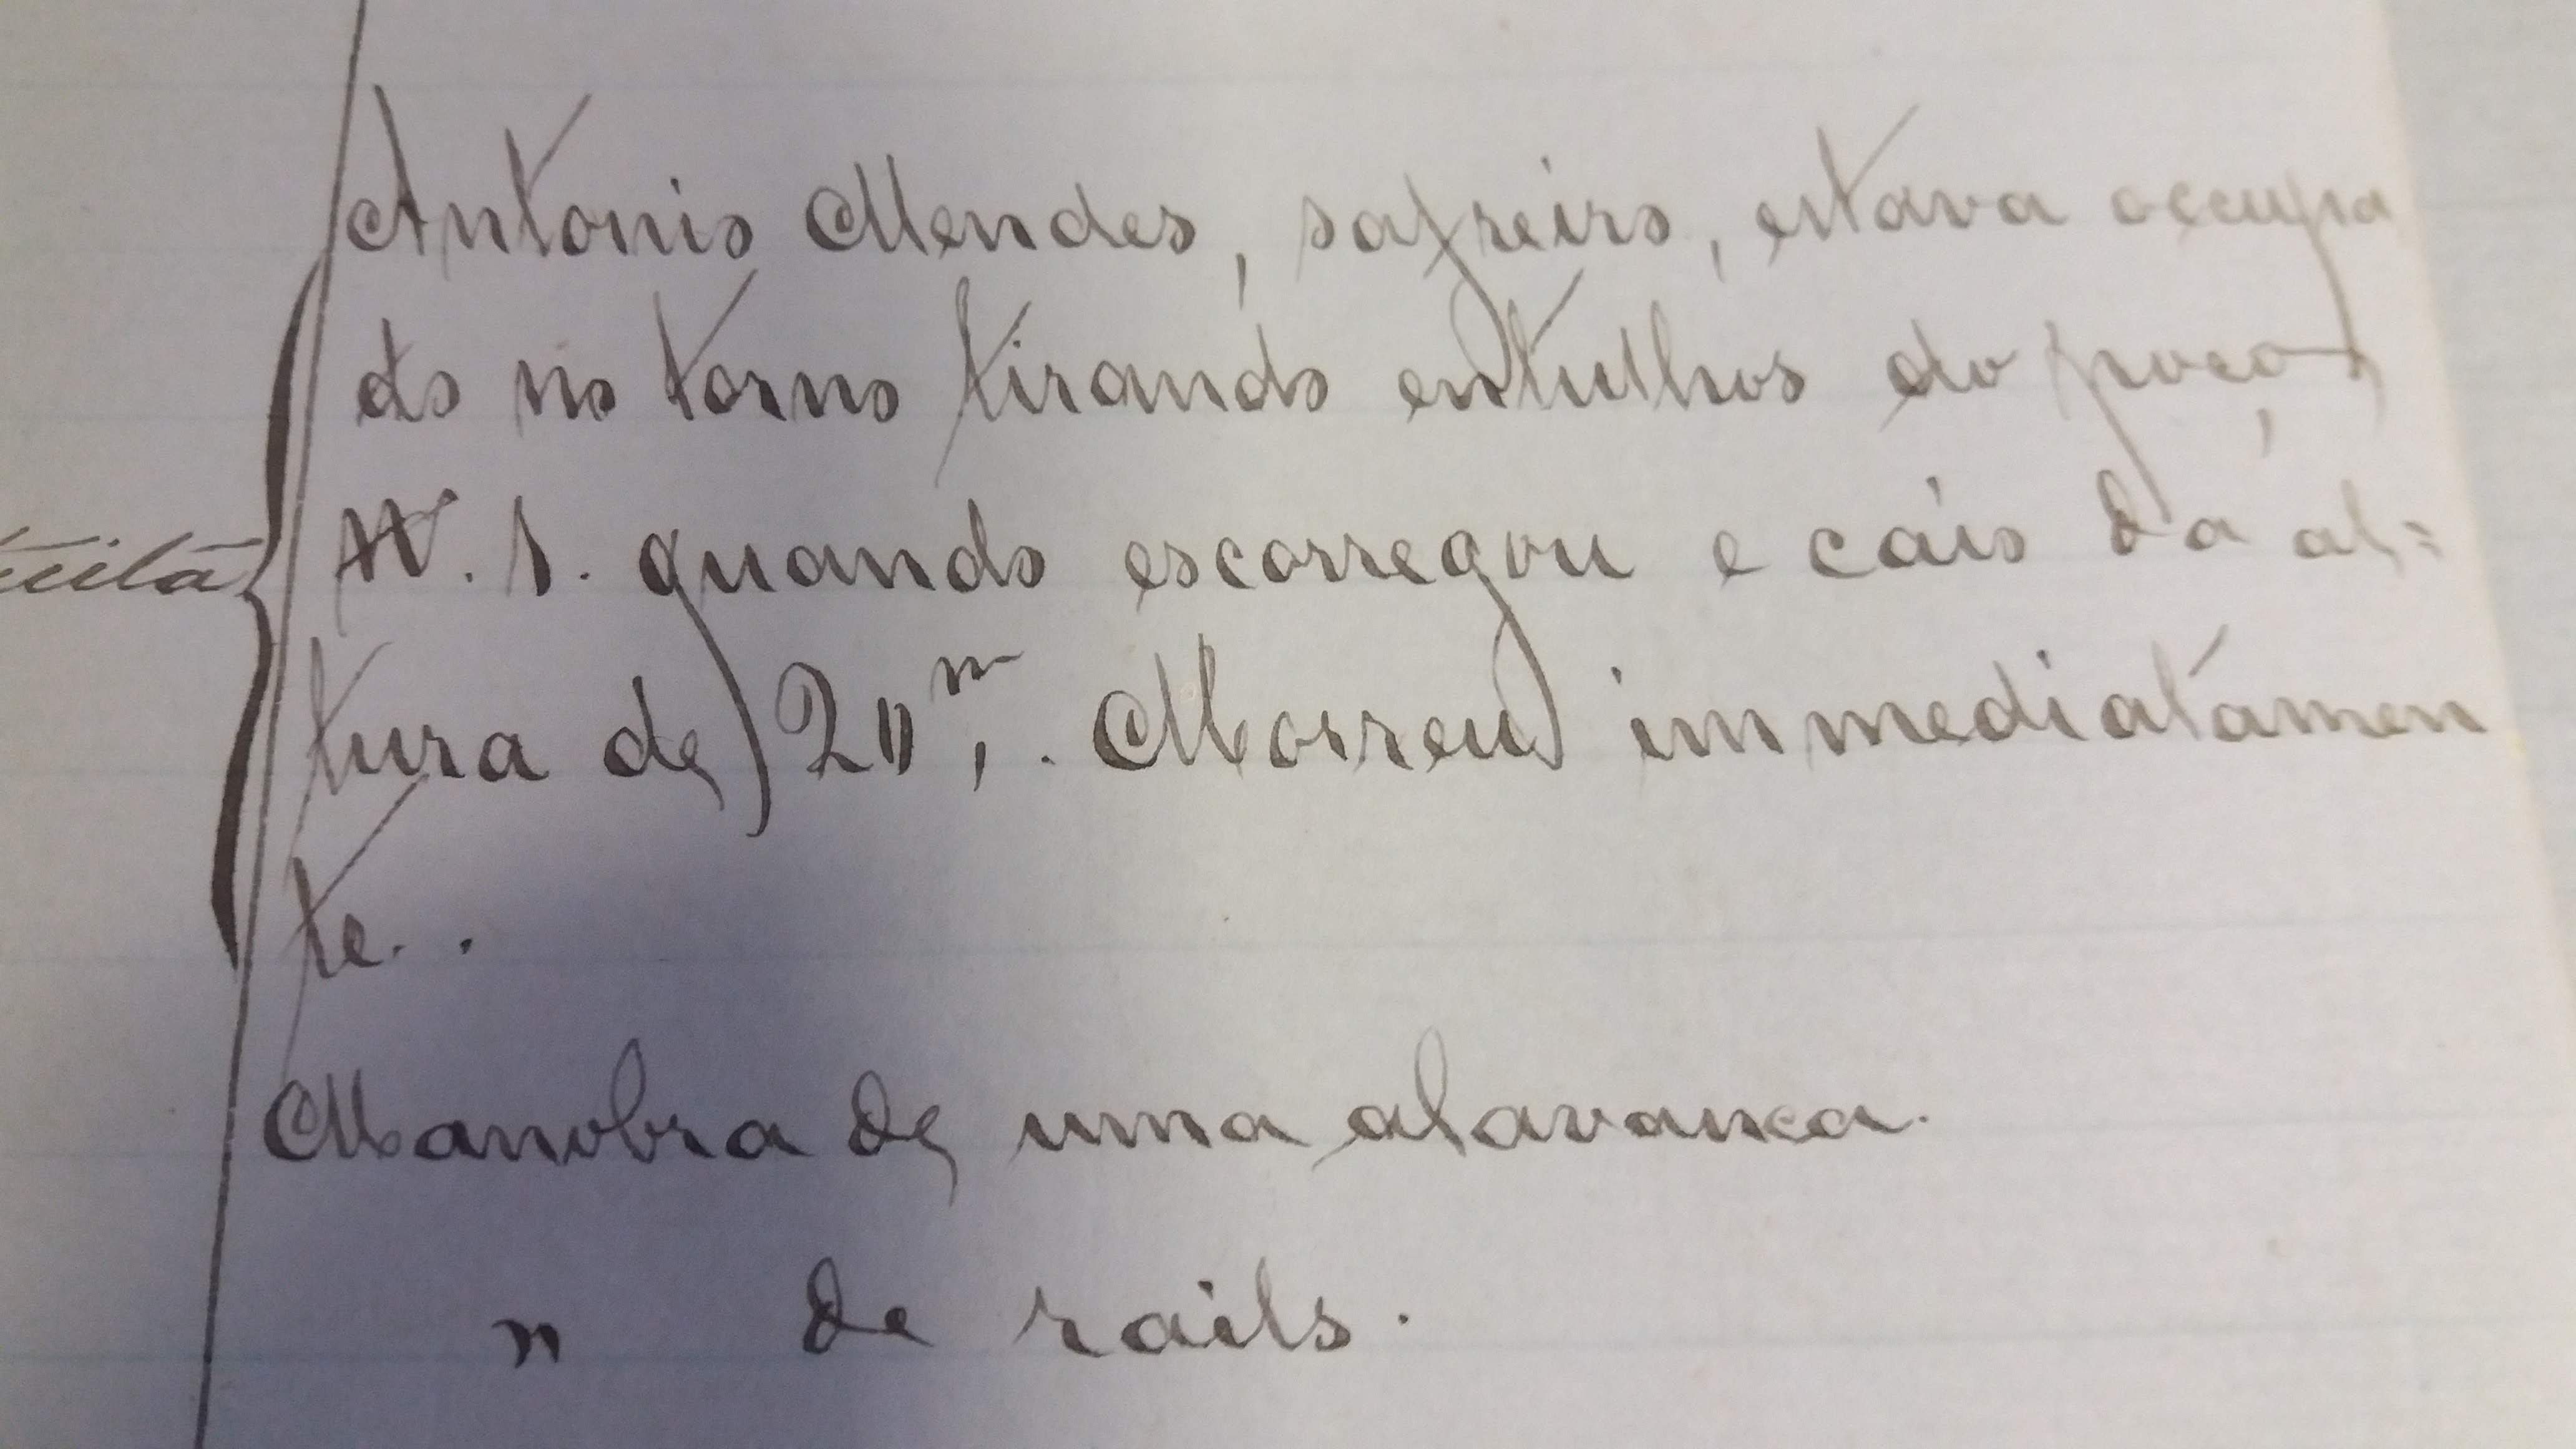 Antonio Mendes, safreiro, estava occupa
do no torno tirando entulhos do poço
N. 1. quando escorregou e cáio da al=
tura de 20m,. Morreu immediatamen
te..
Manobra de uma alavanca.
" de rails.